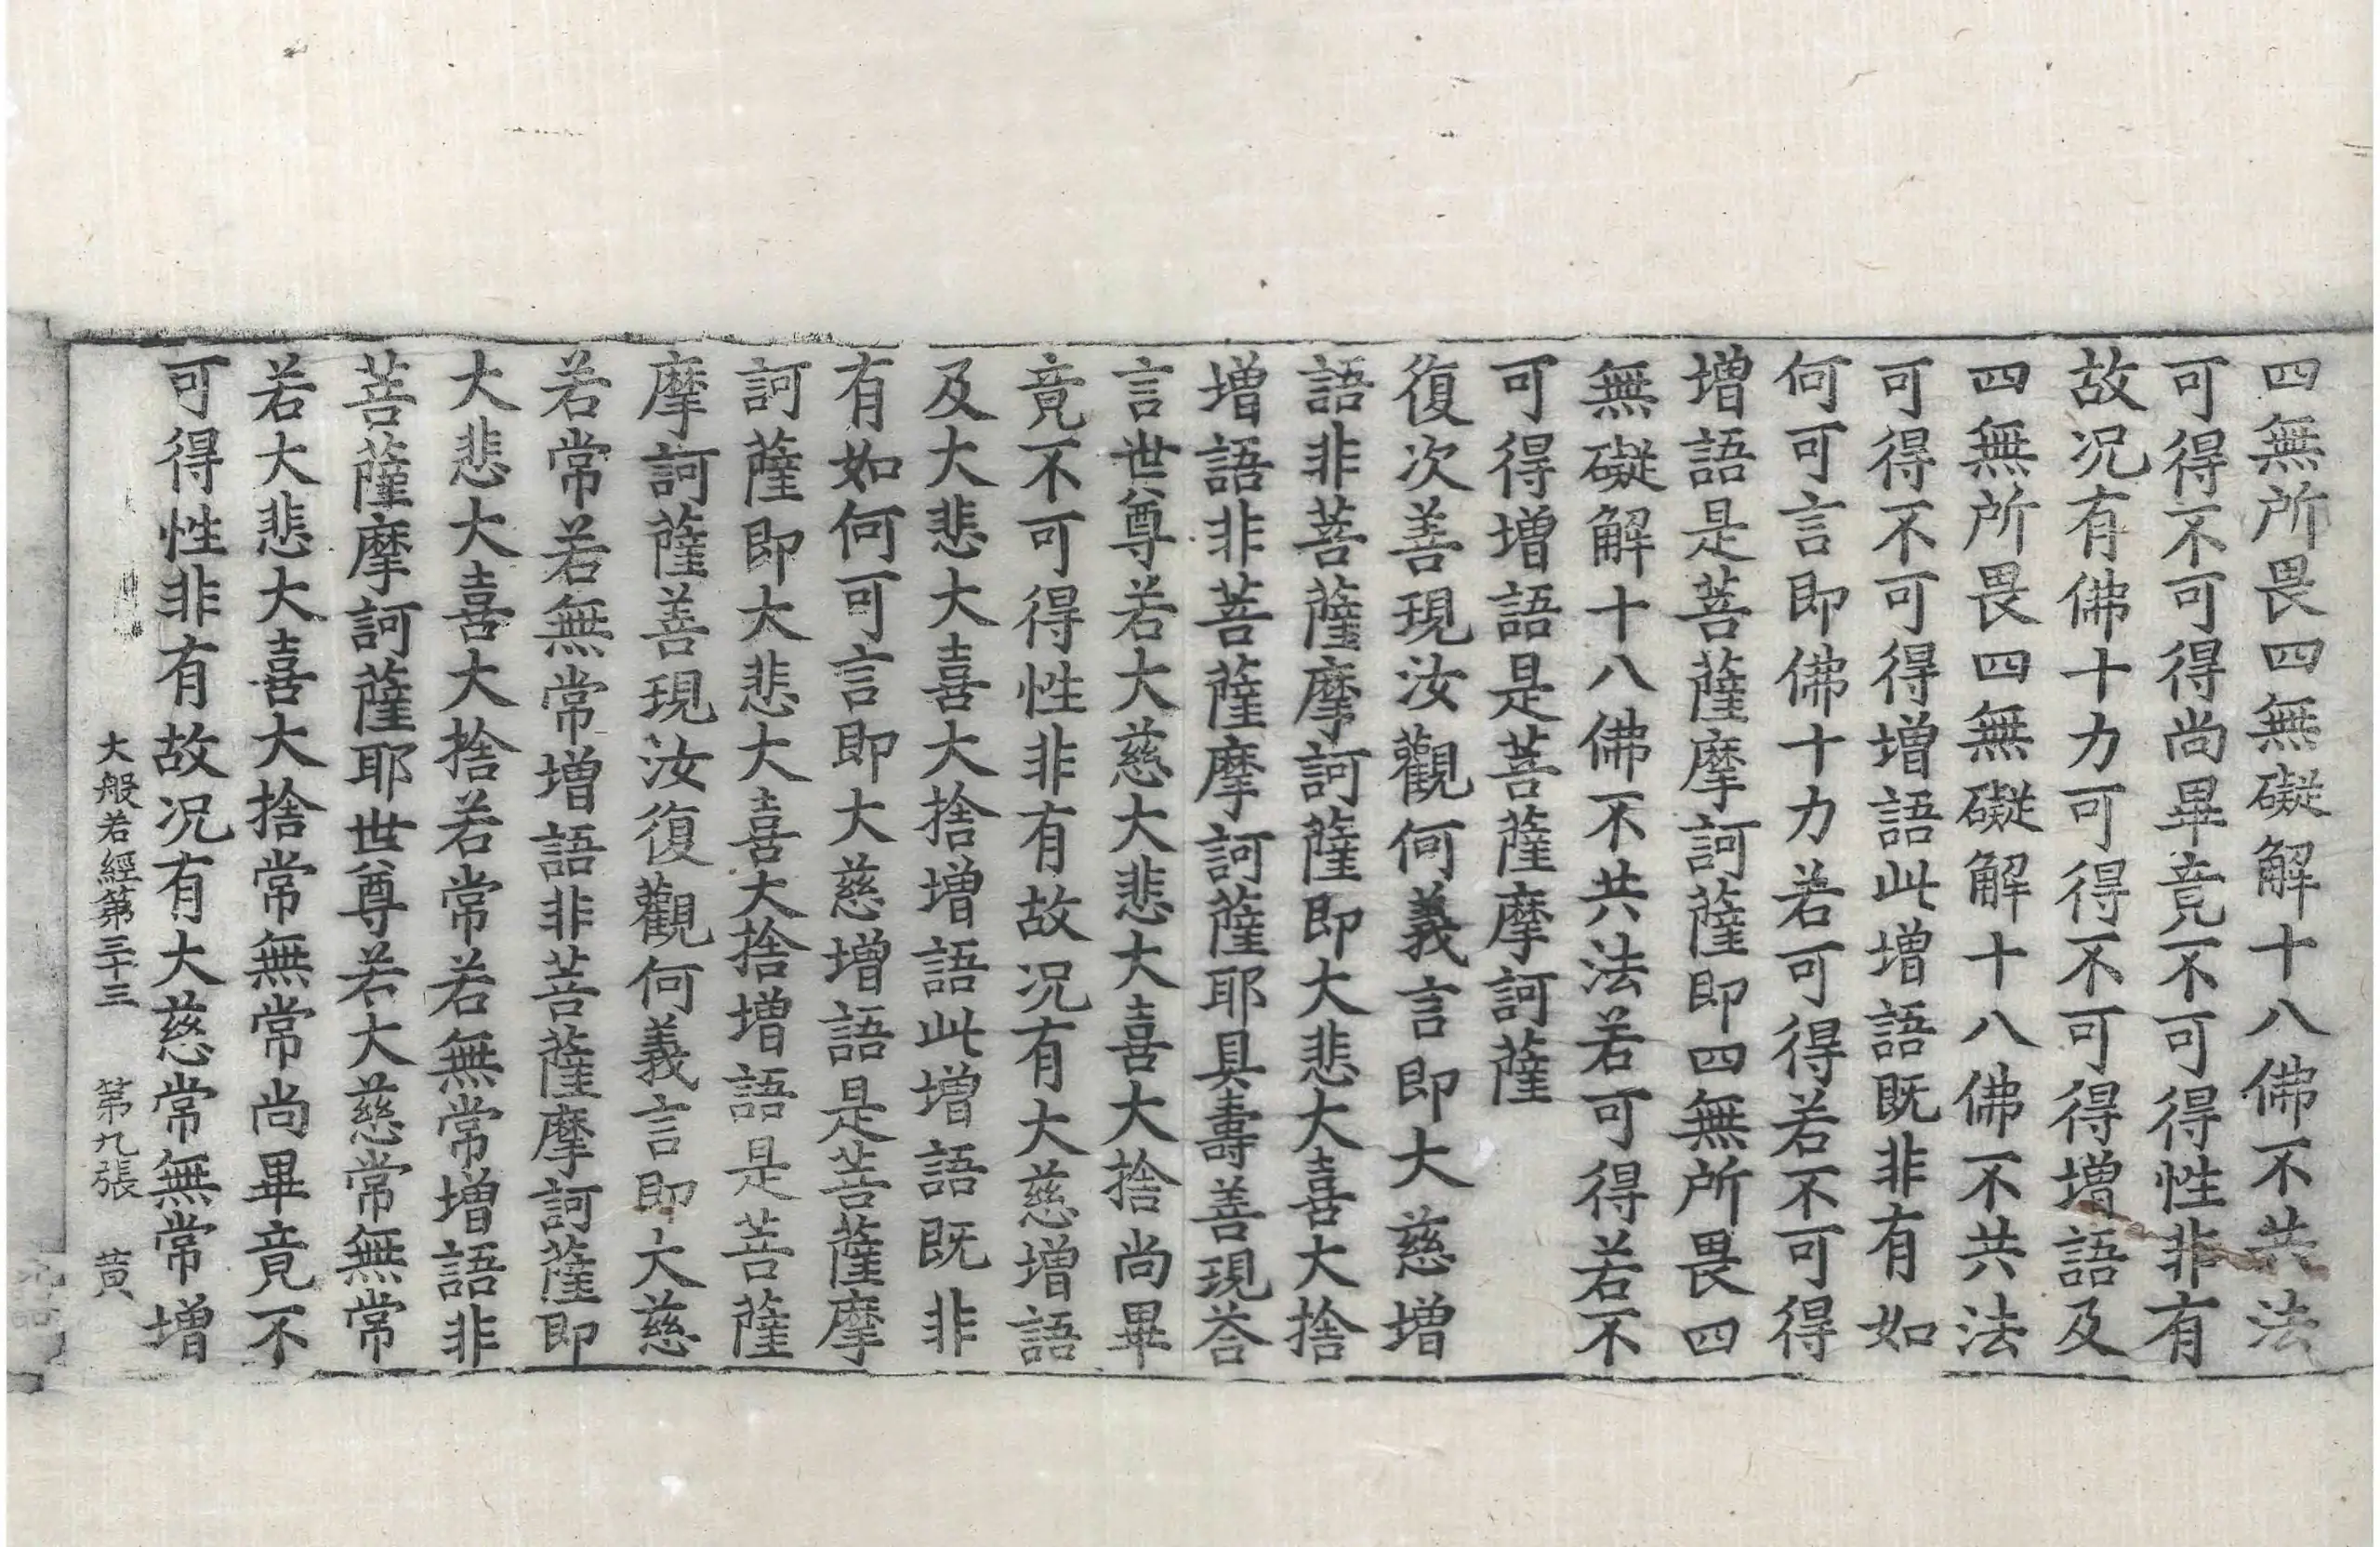 四無所畏四無礙解十八佛不共法
可得不可得尚畢竟不可得性非有
故況有佛十力可得不可得增語及
四無所畏四無礙解十八佛不共法
可得不可得增語此增語既非有如
何可言即佛十力若可得若不可得
增語是菩薩摩訶薩即四無所畏四
無礙解十八佛不共法若可得若不
可得增語是菩薩摩訶薩
復次善現汝觀何義言即大慈增
語非菩薩摩訶薩即大悲大喜大捨
增語非菩薩摩訶薩耶具壽善現荅
言世尊若大慈大悲大喜大捨尚畢
竟不可得性非有故況有大慈增語
及大悲大喜大捨增語此增語既非
有如何可言即大慈增語是菩薩摩
訶薩即大悲大喜大捨增語是菩薩
摩訶薩善現汝復觀何義言即大慈
若常若無常增語非菩薩摩訶薩即
大悲大喜大捨若常若無常增語非
菩薩摩訶薩耶世尊若大慈常無常
若大悲大喜大捨常無常尚畢竟不
可得性非有故況有大慈常無常增
大般若經第三十三 第九張 黄